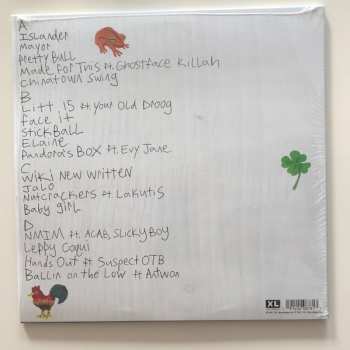 A
Islander
Mayor
Pretty Bull
Made for This ft. Ghostface Killah
Chinatown Swing
B
Litt 15 ft Your Old Droog
face it
Stickball
Elaine
Pandora's Box ft. Evy Jane
C
Wiki New Written
Jalo
Nutcrackers ft. Lakutis
Baby girl
D
NMIM ft. ACAB, Slicky Boy
Leppy Coqui
Hands Out ft Suspect OTB
Ballin on the Low ft Antwon
XL